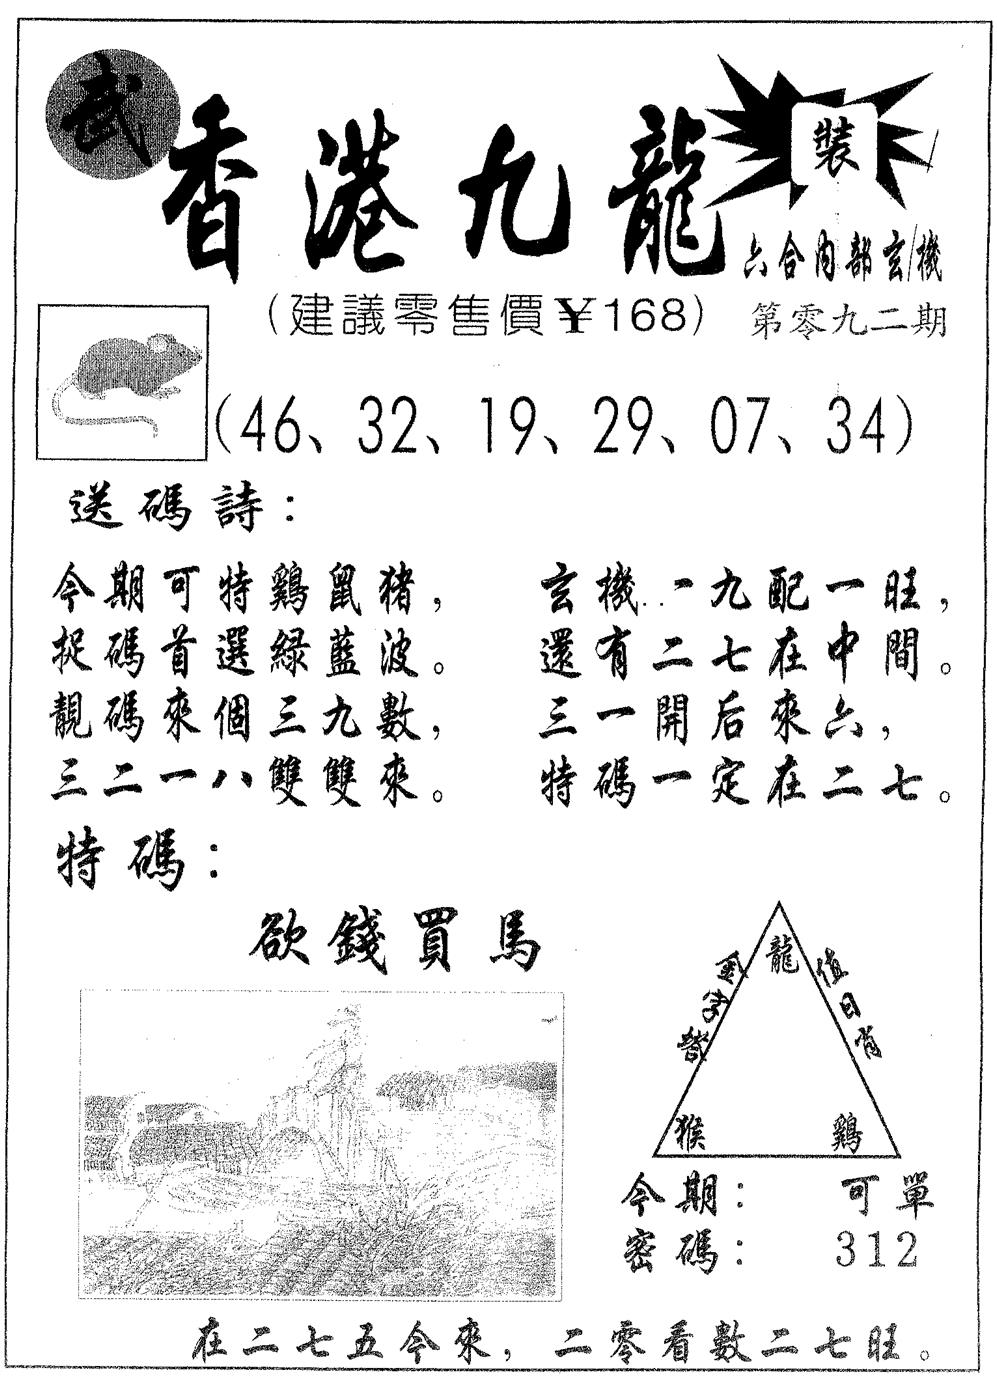 武
香港九龍
裝
六合内部玄機
(建議零售價¥168)
第零九二期
(46、32、19、29、07、34)
送碼詩：
今期可特鷄鼠猪，
捉碼首選緑藍波。
靚碼來個三九數，
三二一八雙雙來。
玄機一九配一旺，
還有二七在中間。
三一開后來六，
特碼一定在二七。
特碼：
欲錢買馬
龍
值日肖
金字
猴
鷄
今期：可單
密碼：312
在二七五今來，二零看數二七旺。